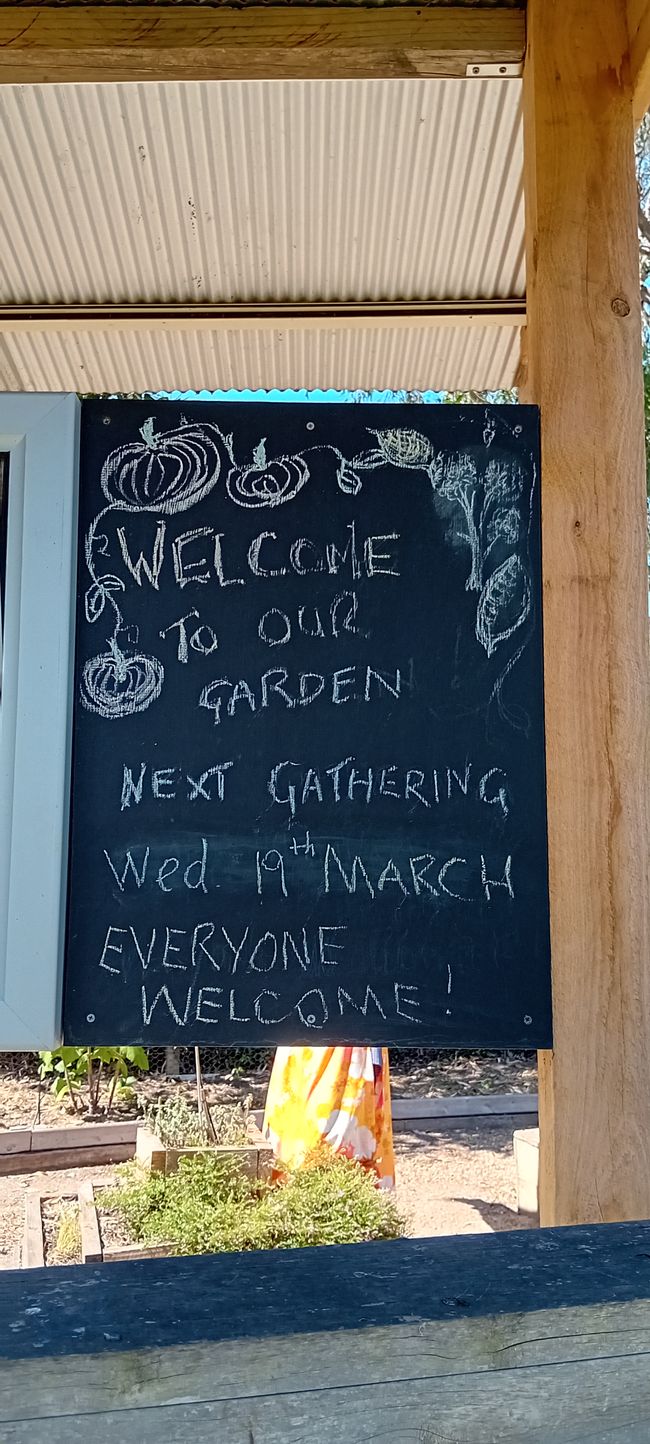 WELCOME
TO OUR
GARDEN
NEXT GATHERING
Wed. 19th MARCH
EVERYONE
WELCOME!